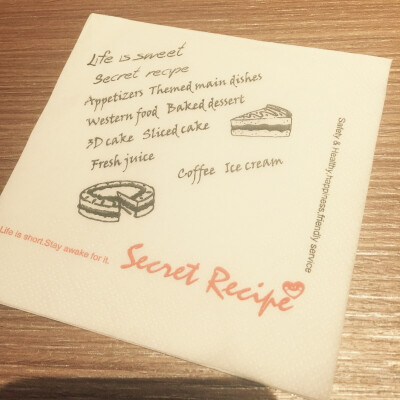 Life is sweet
Secret recipe
Appetizers Themed main dishes
Western food Baked dessert
3D cake Sliced cake
Fresh juice
Coffee Ice cream
Safety & Healthy.happiness.friendly service
Life is short.Stay awake for it.
Secret Recipe